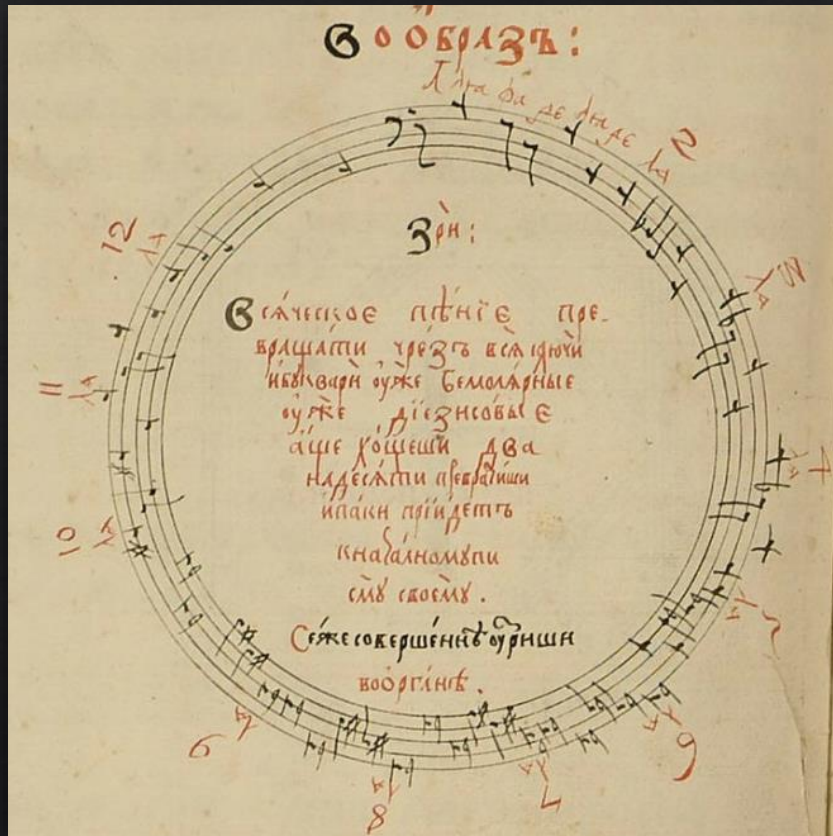 Воо́бразъ:
2
Зрѝ:
3
12
Вся́ческое пѣ́нїе пре-
вращати чре́зъ вся̀ ключѝ
и букварѝ оу́же бемоля́рные
оу́же дїе́зисовые
а́ще хо́щеши два
надесяти превратиши
и паки прїи́детъ
к началному пи
сму̀ своему̀.
Се́же совершеннѣ оу́зриши
во о́рганѣ.
11
4
10
5
9
6
8
7